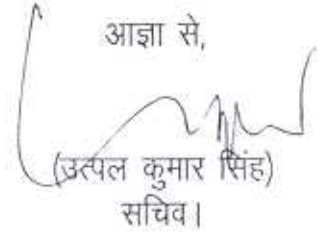 आज्ञा से,
(उत्पल कुमार सिंह)
सचिव।